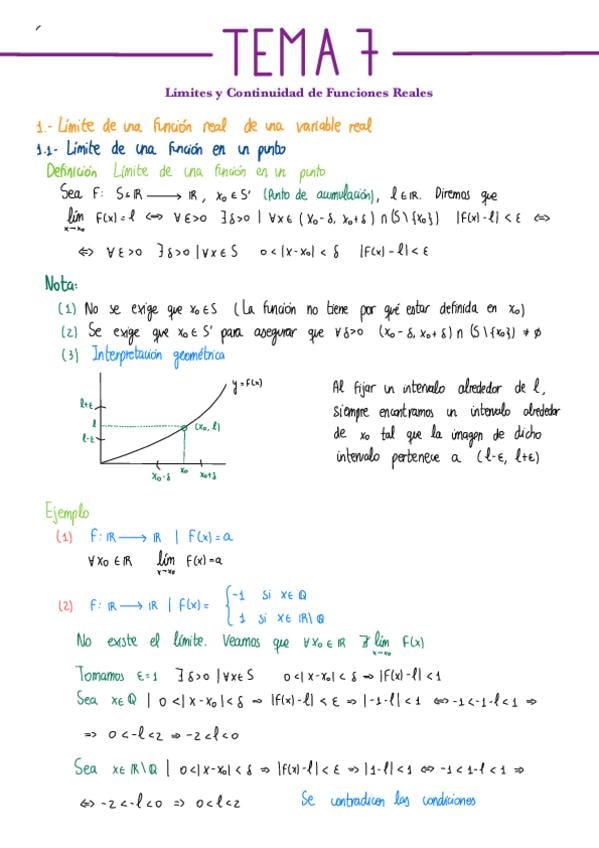 TEMA 7
Límites y Continuidad de Funciones Reales
1.- Límite de una función real de una variable real
1.1- Límite de una función en un punto
Definición Límite de una función en un punto
Sea F: S⊆ℝ ⟶ ℝ, x₀∈S' (Punto de acumulación), l∈ℝ. Diremos que
lím F(x)=l ⟺ ∀ε>0 ∃δ>0 | ∀x∈(x₀-δ, x₀+δ)∩(S\{x₀}) |F(x)-l|<ε ⟺
x→x₀
⟺ ∀ε>0 ∃δ>0 | ∀x∈S 0<|x-x₀|<δ |F(x)-l|<ε
Nota:
(1) No se exige que x₀∈S (La función no tiene por qué estar definida en x₀)
(2) Se exige que x₀∈S' para asegurar que ∀δ>0 (x₀-δ, x₀+δ)∩(S\{x₀}) ≠ ∅
(3) Interpretación geométrica
y=F(x)
l+ε
l
(x₀, l)
l-ε
x₀-δ x₀ x₀+δ
Al fijar un intervalo alrededor de l,
siempre encontramos un intervalo alrededor
de x₀ tal que la imagen de dicho
intervalo pertenece a (l-ε, l+ε)
Ejemplo
(1) F: ℝ ⟶ ℝ | F(x)=a
∀x₀∈ℝ lím F(x)=a
x→x₀
(2) F: ℝ ⟶ ℝ | F(x)= { -1 si x∈ℚ
1 si x∈ℝ\ℚ
No existe el límite. Veamos que ∀x₀∈ℝ ∄ lím F(x)
x→x₀
Tomamos ε=1 ∃δ>0 | ∀x∈S 0<|x-x₀|<δ ⇒ |F(x)-l|<1
Sea x∈ℚ | 0<|x-x₀|<δ ⇒ |F(x)-l|<ε ⇒ |-1-l|<1 ⟺ -1<-1-l<1 ⇒
⇒ 0<-l<2 ⇒ -2<l<0
Sea x∈ℝ\ℚ | 0<|x-x₀|<δ ⇒ |F(x)-l|<ε ⇒ |1-l|<1 ⟺ -1<1-l<1 ⇒
⟺ -2<-l<0 ⇒ 0<l<2 Se contradicen las condiciones